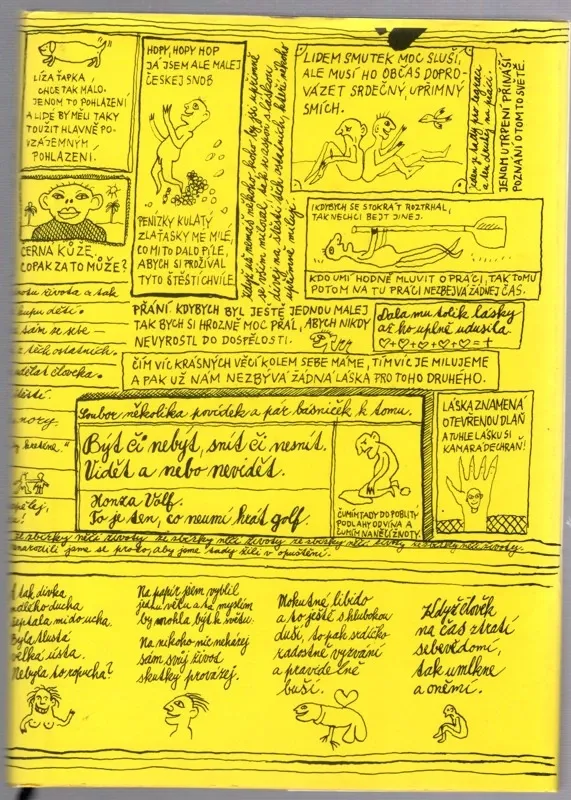 LÍZA ŤAPKA,
CHCE TAK MÁLO.
JENOM TO POHLAZENÍ
A LIDÉ BY MĚLI TAKY
TOUŽIT HLAVNĚ PO
VZÁJEMNÝM
POHLAZENÍ.
HOPY, HOPY HOP
JÁ JSEM ALE MALEJ
ČESKEJ SNOB
PENÍZKY KULATÝ
ZLAŤASKY MÉ MILÉ,
CO MI TO DALO PÍLE,
ABYCH SI PROŽÍVAL
TYTO ŠTĚSTÍ CHVÍLE
LIDEM SMUTEK MOC SLUŠÍ,
ALE MUSÍ HO OBČAS DOPRO-
VÁZET SRDEČNÝ, UPŘÍMNÝ
SMÍCH.
JENOM UTRPENÍ PŘINÁŠÍ
POZNÁNÍ O TOMTO SVĚTĚ.
I KDYBYCH SE STOKRÁT ROZTRHAL,
TAK NECHCI BEJT JINEJ.
KDO UMÍ HODNĚ MLUVIT O PRÁCI, TAK TOMU
POTOM NA TU PRÁCI NEZBEJVÁ ŽÁDNEJ ČAS.
ČERNÁ KŮŽE.
COPAK ZA TO MŮŽE?
PŘÁNÍ KDYBYCH BYL JEŠTĚ JEDNOU MALEJ
TAK BYCH SI HROZNĚ MOC PŘÁL, ABYCH NIKDY
NEVYROSTL DO DOSPĚLOSTI.
Dala mu tolik lásky
až ho úplně udusila
♡+♡+♡+♡=+
ČÍM VÍC KRÁSNÝCH VĚCÍ KOLEM SEBE MÁME, TÍM VÍC JE MILUJEME
A PAK UŽ NÁM NEZBÝVÁ ŽÁDNÁ LÁSKA PRO TOHO DRUHÉHO.
života a tak
dětí.
sám ze sebe —
z těch ostatních.
udělat člověka.
Soubor několika povídek a pár básniček k tomu.
Být či nebýt, snít či nesnít.
Vidět a nebo nevidět.
Honza Volf.
To je ten, co neumí hrát golf.
ČUMÍM TADY DO POBLITÝ
PODLAHY OD VÍNA A
ČUMÍM NA NĚČÍ ŽIVOTY.
LÁSKA ZNAMENÁ
OTEVŘENOU DLAŇ
A TUHLE LÁSKU SI
KAMARÁDE CHRAŇ!
narodili jsme se proto, aby jsme tady žili v opuštění.
tak dívka
malého ducha
šeptala mi do ucha.
Byla tlustá
velká ústa.
Nebyla to ropucha?
Na papír jsem vyblil
jednu větu a tá myslím
by mohla být k světu.
Na nikoho nic neházej
sám svůj život
skutky provázej.
Mohutné libido
a to ještě s hlubokou
duší, to pak srdíčko
radostně vyzvání
a pravidelně
buší.
Když člověk
na čas ztratí
sebevědomí,
tak umlkne
a oněmí.